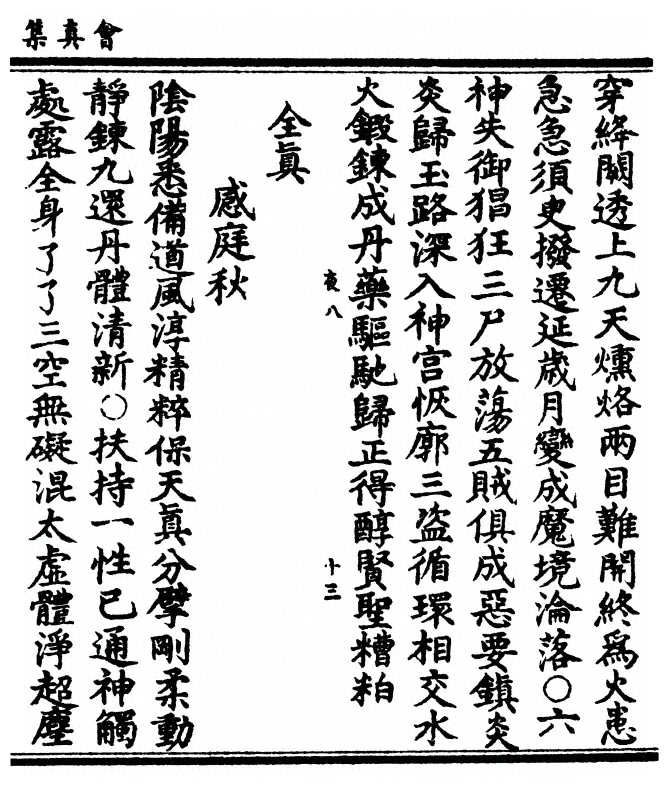 會真集
穿絳闕透上九天燻烙兩目難開終爲火患
急急須臾撥遷延歲月變成魔境淪落○六
神失御猖狂三尸放蕩五賊俱成惡要鎮炎
炎歸玉路深入神宮恢廓三盜循環相交水
火鍛鍊成丹藥驅馳歸正得醇賢聖糟粕
夜八
十三
全眞
感庭秋
陰陽悉備道風淳精粹保天眞分擘剛柔動
靜鍊九還丹體清新○扶持一性已通神觸
處露全身了了三空無礙混太虛體淨超塵